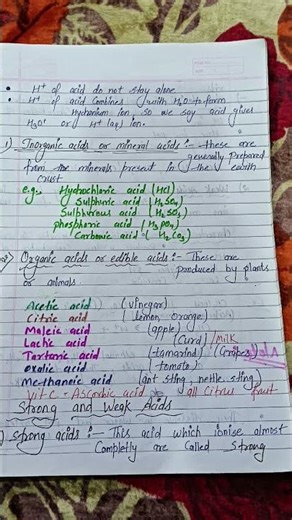 • H⁺ of acid do not stay alone
• H⁺ of acid combines with H₂O to form
Hydronium ion so we say acid gives
H₃O⁺ or H⁺(aq) ion.
1) Inorganic acids or mineral acids :- these are
generally prepared
from the minerals present in the earth
crust
e.g., Hydrochloric acid (HCl)
Sulphuric acid (H₂SO₄)
Sulphurous acid (H₂SO₃)
phosphoric acid (H₃PO₄)
Carbonic acid (H₂CO₃)
Organic acids or edible acids :- These are
produced by plants
or animals
Acetic acid (vinegar)
Citric acid (lemon, orange)
Maleic acid (apple)
Lachic acid (Curd) /milk
Tartaric acid (tamarind) (Grapes)
oxalic acid (tomato)
Methaneic acid (ant sting, nettle sting)
Vit C - Ascorbic acid all Citrus fruit
Strong and Weak Acids
) Strong acids :- This acid which ionise almost
Completly are Called Strong